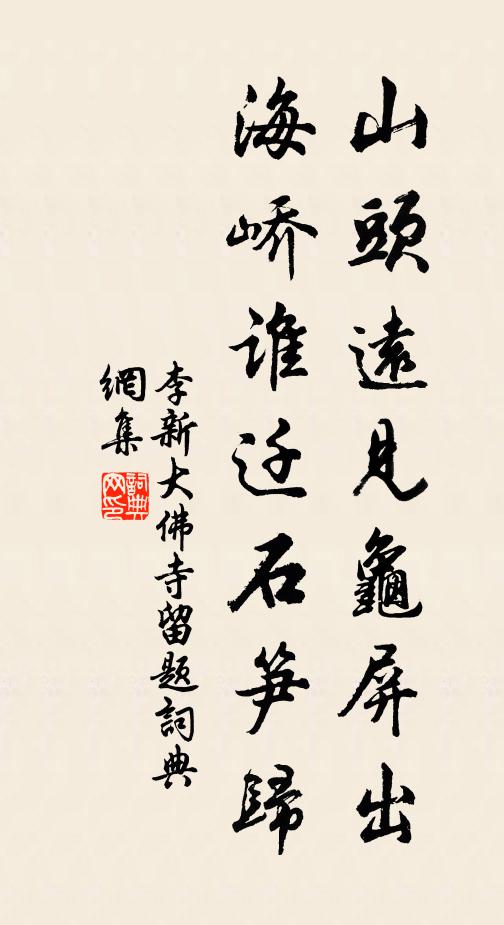 山頭遠見龜屏出
海嶠誰迁石笋歸
李新大佛寺留题詞典
網集
詞典网印